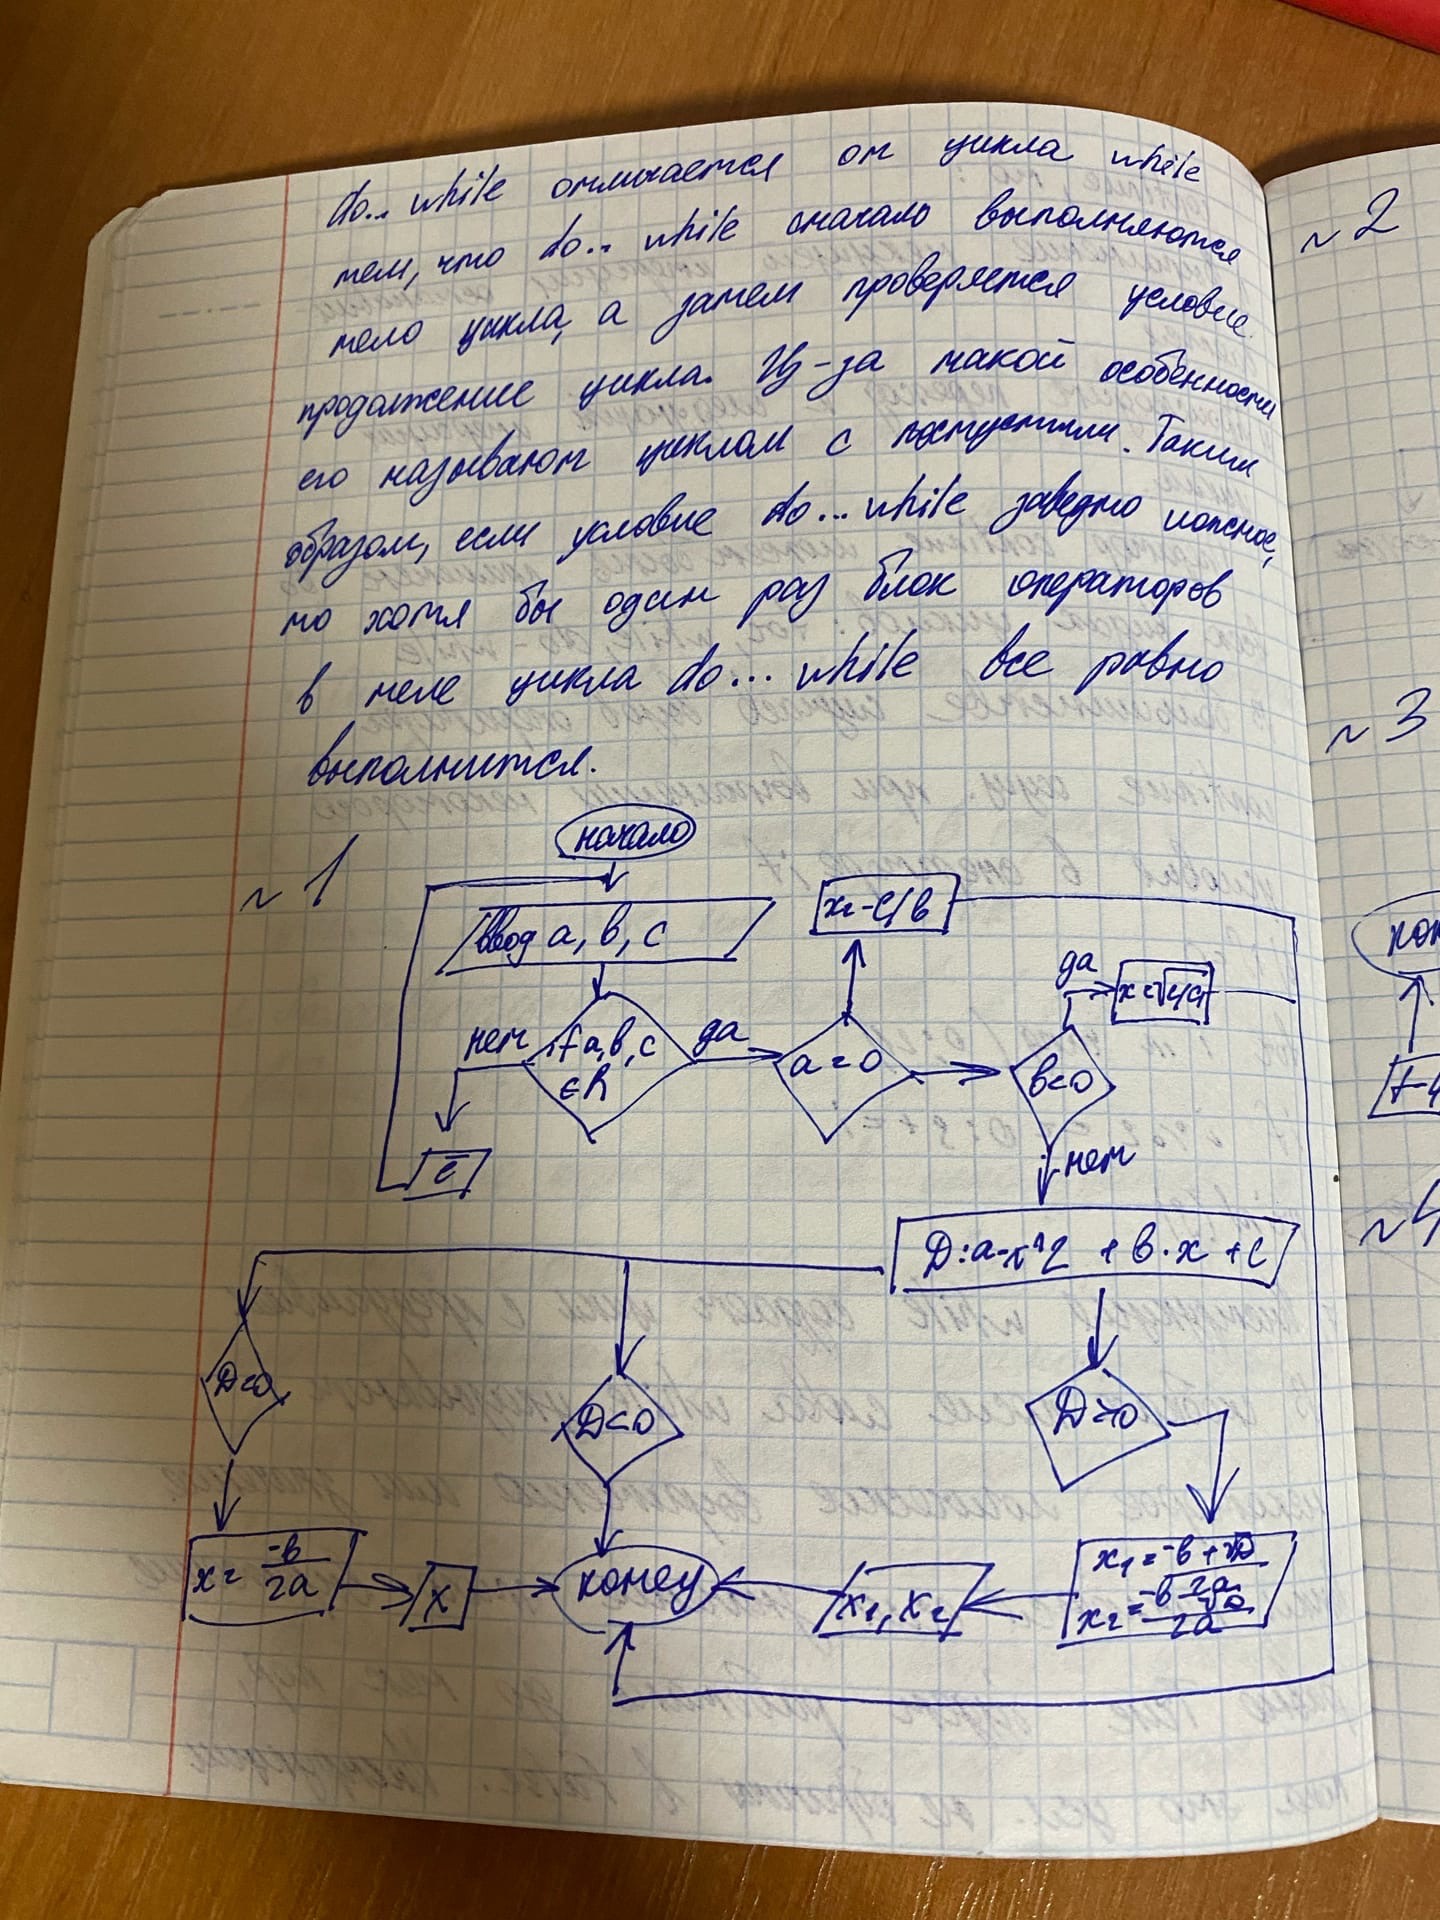 do... while отличается от цикла while
тем, что do... while сначало выполняются
тело цикла, а затем проверяется условие
продолжение цикла. Из-за такой особенности
его называют циклом с
. Таким
образом, если условие do... while заведмо ложное,
то хотя бы один раз блок операторов
в теле цикла do... while все равно
выполнится.
~1
начало
Ввод a, b, c
if a, b, c
∈ R
нет
да
c
a = 0
x = -c/b
b<0
да
нет
D: a-x^2 + b·x + c
D<0
D>0
x = -b/2a
x
конец
x1, x2
~2
~3
~4